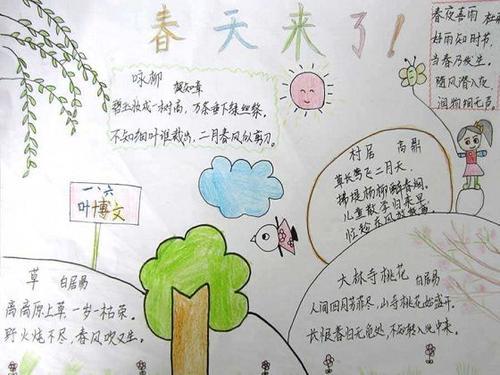 春天来了!
春夜喜雨 杜
好雨知时节,
当春乃发生。
随风潜入夜,
润物细无声。
咏柳 贺知章
碧玉妆成一树高,万条垂下绿丝绦。
不知细叶谁裁出,二月春风似剪刀。
村居 高鼎
草长莺飞二月天,
拂堤杨柳醉春烟。
儿童散学归来早,
忙趁东风放纸鸢。
一、六
叶博文
草 白居易
离离原上草 一岁一枯荣。
野火烧不尽,春风吹又生。
大林寺桃花 白居易
人间四月芳菲尽,山寺桃花始盛开。
长恨春归无觅处,不知转入此中来。